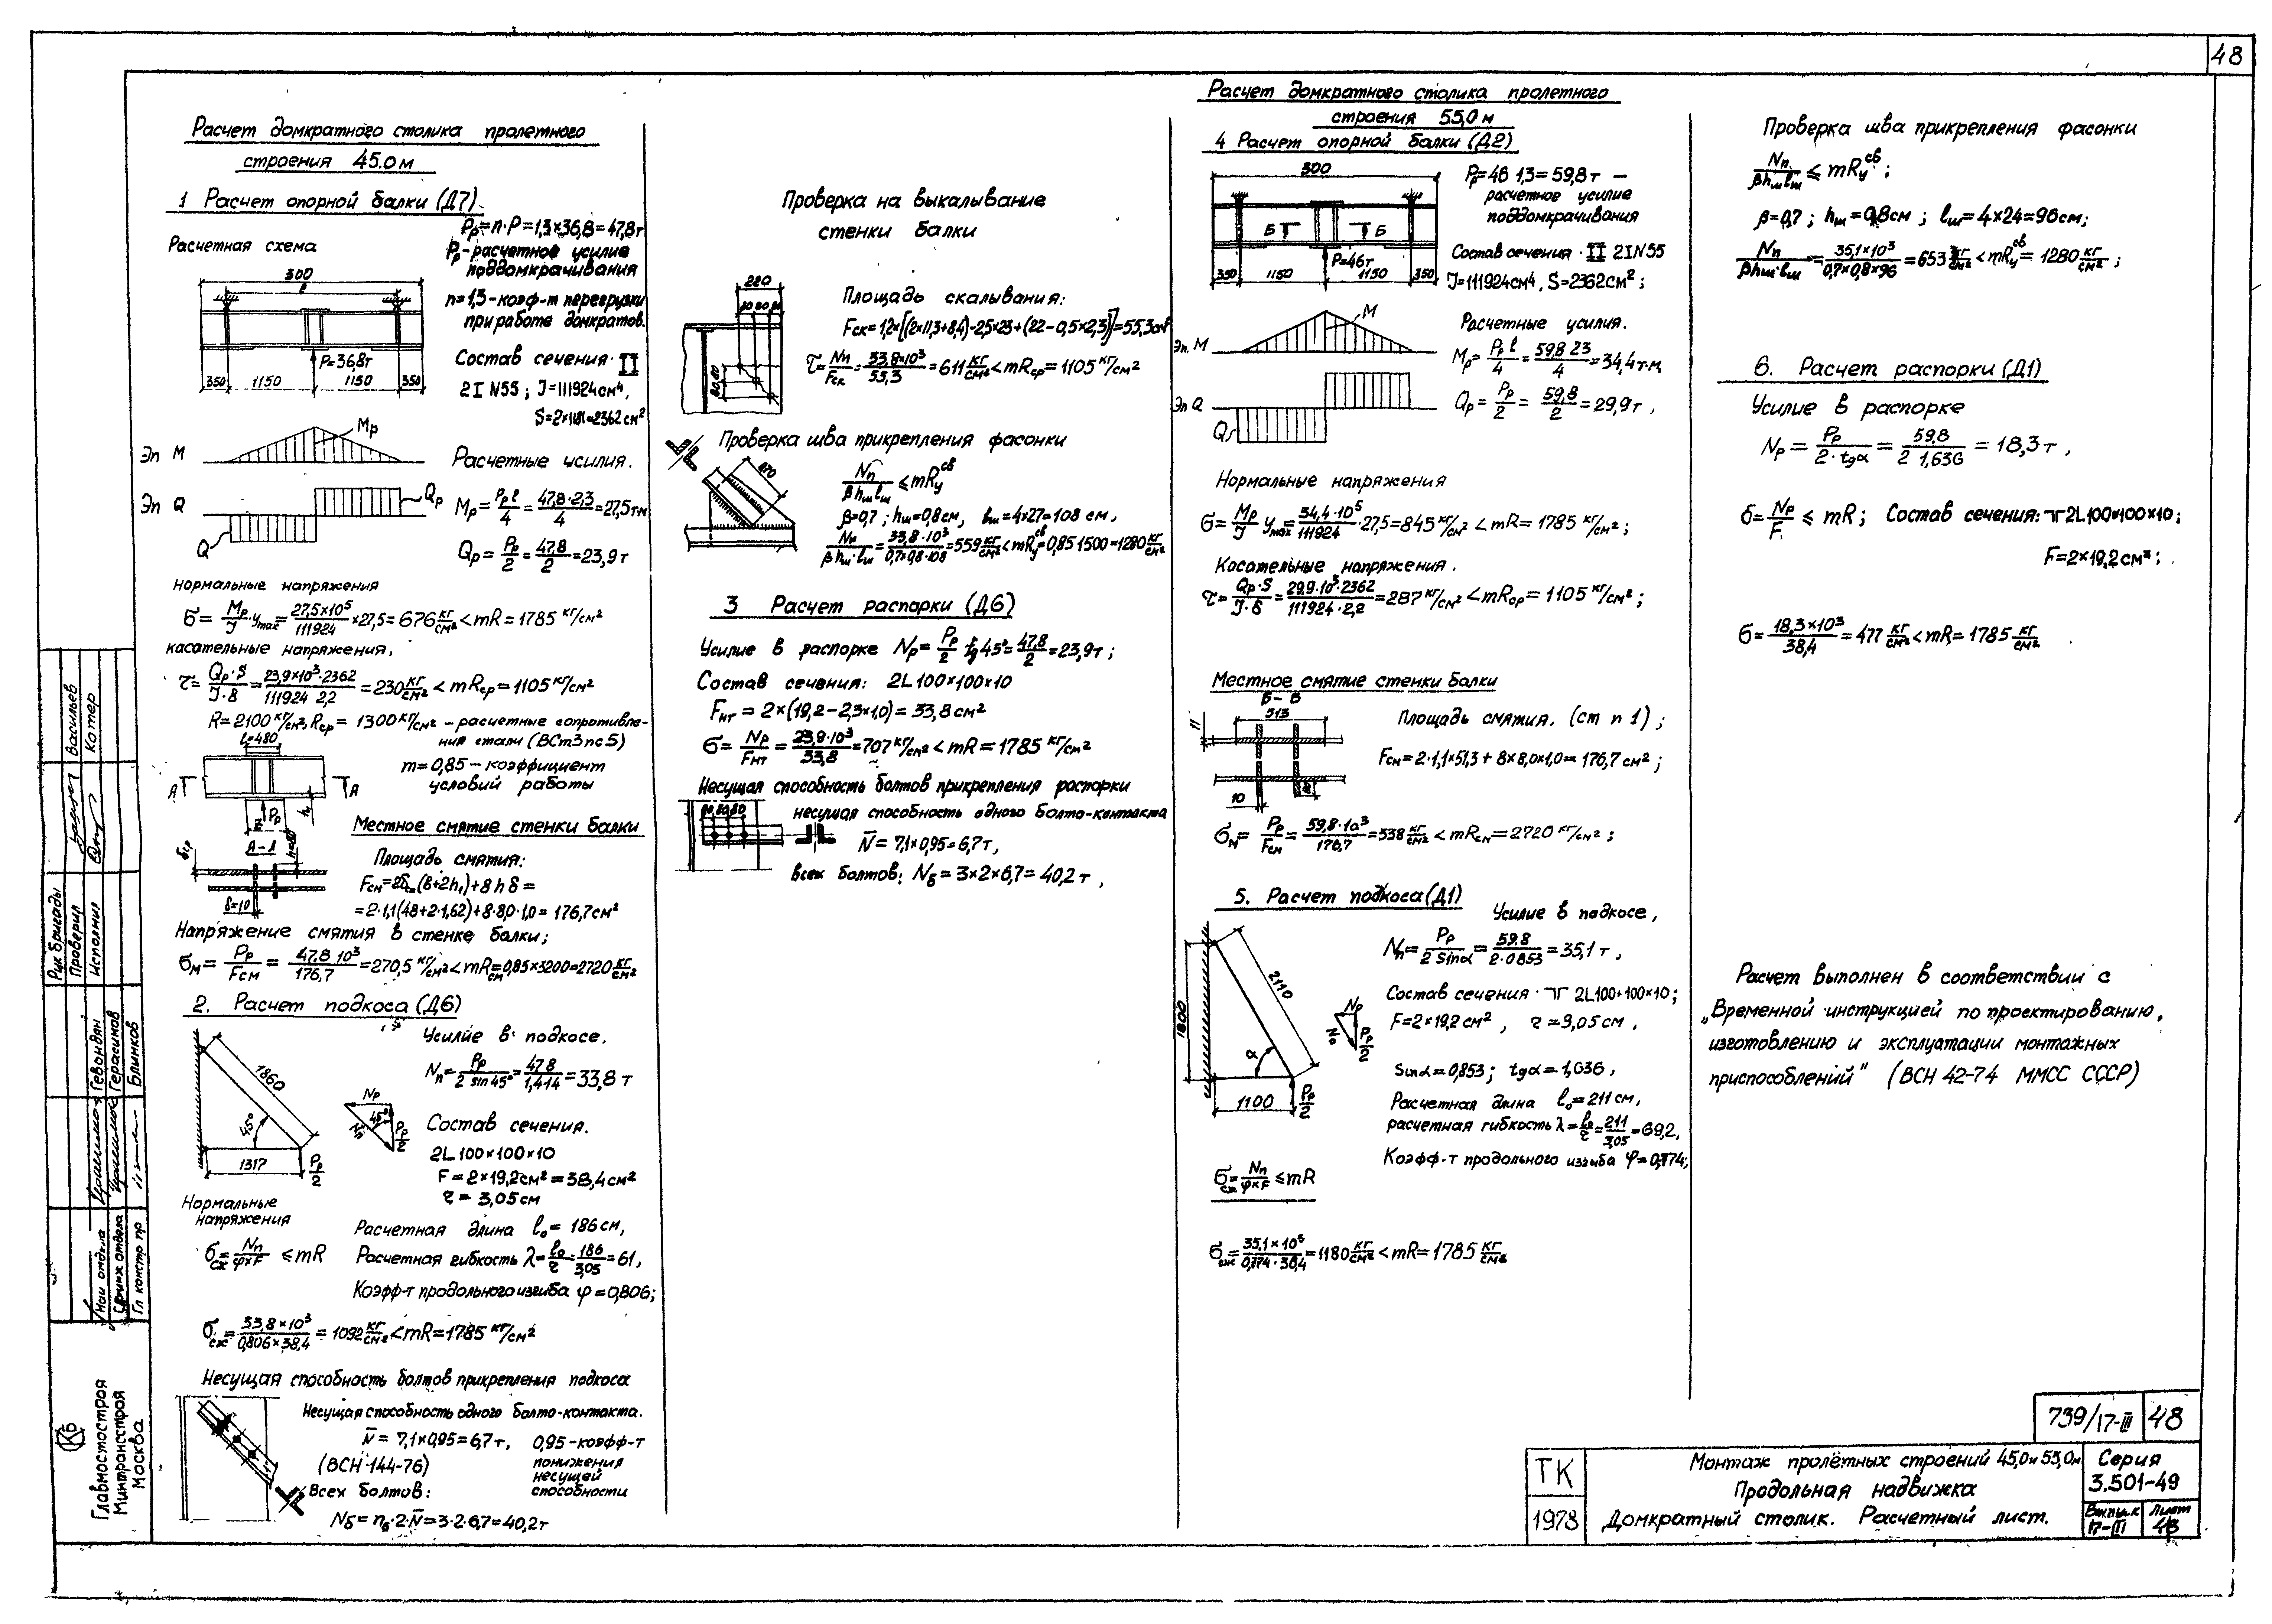 48
Расчет домкратного столика пролетного
строения 45.0м
1 Расчет опорной балки (Д7)
Pр=n·P=1,3×36,8=47,8т
Pр-расчетное усилие
поддомкрачивания
Расчетная схема
300
ℓ
n=1,3-коэф-т перегрузки
при работе домкратов.
P=36,8т
350 1150 1150 350
Состав сечения·II
2I N55; J=111924см⁴,
S=2×1181=2362 см²
Mр
Эп M
Расчетные усилия.
Эп Q
Qр
Q
Mр= Pр ℓ/4 = 47,8·2,3/4 =27,5тм
Qр= Pр/2 = 47,8/2 =23,9т
Нормальные напряжения
σ= Mр/J ·yмах= 27,5×10⁵/111924 ×27,5=676 кг/см² <mR=1785 кг/см²
касательные напряжения,
τ= Qр·S/J·δ = 23,9×10³·2362/111924 2,2 =230 кг/см² < mRср=1105 кг/см²
R=2100 кг/см², Rср= 1300 кг/см² - расчетные сопротивле-
ния стали (ВСт3пс5)
ℓ=480
m=0,85-коэффициент
условий работы
A A
Pр
A-A
δ=10
Местное смятие стенки балки
Площадь смятия:
Fсм=2δст(в+2h₁)+8hδ=
=2·1,1(48+2·1,62)+8·8,0·1,0= 176,7см²
Напряжение смятия в стенке балки;
σм= Pр/Fсм = 47,8 10³/176,7 =270,5 кг/см² <mRсм=0,85×3200=2720 кг/см²
2. Расчет подкоса (Д6)
Усилие в подкосе.
Nп= Pр/2 sin45° = 47,8/1,414 =33,8 т
1860
45°
1317
Pр/2
Nр
45°
Pр/2
Состав сечения.
2L 100×100×10
F=2×19,2см²=38,4см²
r= 3,05см
Нормальные
напряжения
Расчетная длина ℓ₀= 186см,
σсж= Nп/φ×F ≤mR
Расчетная гибкость λ= ℓ₀/r = 186/3,05 =61,
Коэфф-т продольного изгиба φ=0,806;
σсж= 33,8×10³/0,806×38,4 = 1092 кг/см² <mR=1785 кг/см²
Несущая способность болтов прикрепления подкоса
Несущая способность одного болто-контакта.
N̄= 7,1×0,95=6,7т, 0,95-коэфф-т
(ВСН-144-76) понижения
несущей
способности
Всех болтов:
Nб= nб·2·N̄=3·2·6,7=40,2т
Проверка на выкалывание
стенки балки
220
Площадь скалывания:
Fск=1,2×[(2×11,3+8,4)-2,5×2,3+(22-0,5×2,3)]=55,3см²
τ= Nп/Fск = 33,8×10³/55,3 =611 кг/см² <mRср=1105 кг/см²
Проверка шва прикрепления фасонки
270
Nп/βhшℓш ≤mRyсв
β=0,7; hш=0,8см, ℓш=4×27=108 см,
Nп/βhш·ℓш = 33,8·10³/0,7×0,8·108 =559 кг/см² <mRyсв=0,85 1500=1280 кг/см²
3 Расчет распорки (Д6)
Усилие в распорке Nр= Pр/2 tg45°= 47,8/2 =23,9т;
Состав сечения: 2L 100×100×10
Fнт = 2×(19,2-2,3×1,0)= 33,8см²
σ= Nр/Fнт = 23,9·10³/33,8 =707 кг/см² <mR=1785 кг/см²
Несущая способность болтов прикрепления распорки
80 80 80
несущая способность одного болто-контакта
N̄= 7,1×0,95=6,7т,
всех болтов: Nб=3×2×6,7=40,2т,
Расчет домкратного столика пролетного
строения 55,0м
4 Расчет опорной балки (Д2)
300
Pр=46 1,3=59,8т —
расчетное усилие
поддомкрачивания
Б Б
P=46т
350 1150 1150 350
Состав сечения·II 2IN55
J=111924см⁴, S=2362см²;
M
Эп. M
Расчетные усилия.
Mр= Pр ℓ/4 = 59,8 2,3/4 =34,4т·м,
Эп Q
Q
Qр= Pр/2 = 59,8/2 =29,9т,
Нормальные напряжения
σ= Mр/J yмах= 34,4·10⁵/111924 ·27,5=845 кг/см² <mR=1785 кг/см²;
Касательные напряжения.
τ= Qр·S/J·δ = 29,9·10³·2362/111924·2,2 =287 кг/см² <mRср=1105 кг/см²;
Местное смятие стенки балки
Б-Б
513
11
10
Площадь смятия. (см п 1);
Fсм=2·1,1×51,3+8×8,0×1,0=176,7см²;
σм= Pр/Fсм = 59,8·10³/176,7 =338 кг/см² <mRсм=2720 кг/см²;
5. Расчет подкоса (Д1)
Усилие в подкосе,
Nп= Pр/2 sinα = 59.8/2·0853 =35,1т,
1800
2110
α
1100
Pр/2
Nр
Pр/2
Состав сечения· 2L100×100×10;
F=2×19,2см², r=3,05см,
sinα=0,853; tgα=1,636,
Расчетная длина ℓ₀=211см,
расчетная гибкость λ= ℓ₀/r = 211/3,05 =69,2,
Коэфф-т продольного изгиба φ=0,774;
σсж= Nп/φ×F ≤mR
σсж= 35,1×10³/0,774·38,4 =1180 кг/см² <mR=1785 кг/см²
Проверка шва прикрепления фасонки
Nп/βhшℓш ≤ mRyсв;
β=0,7; hш=0,8см; ℓш=4×24=96см;
Nп/βhш·ℓш = 35,1×10³/0,7×0,8×96 =653 кг/см² <mRyсв= 1280 кг/см²;
6. Расчет распорки (Д1)
Усилие в распорке
Nр= Pр/2·tgα = 59,8/2 1,636 =18,3т,
σ= Nр/F ≤ mR; Состав сечения: 2L100×100×10;
F=2×19,2см²;
σ= 18,3×10³/38,4 =477 кг/см² <mR=1785 кг/см²
Расчет выполнен в соответствии с
„Временной инструкцией по проектированию,
изготовлению и эксплуатации монтажных
приспособлений" (ВСН 42-74 ММСС СССР)
739/17-III 48
ТК
1978
Монтаж пролётных строений 45,0и 55,0м
Продольная надвижка
Домкратный столик. Расчетный лист.
Серия
3.501-49
Выпуск Лист
17-III 48
Рук бригады
Проверил Васильев
Исполнил Котер
Нач отдела Гевондян
Гл инж отдела Герасимов
Гл констр пр Блинков
Главмостострой
Минтрансстроя
Москва
КБ